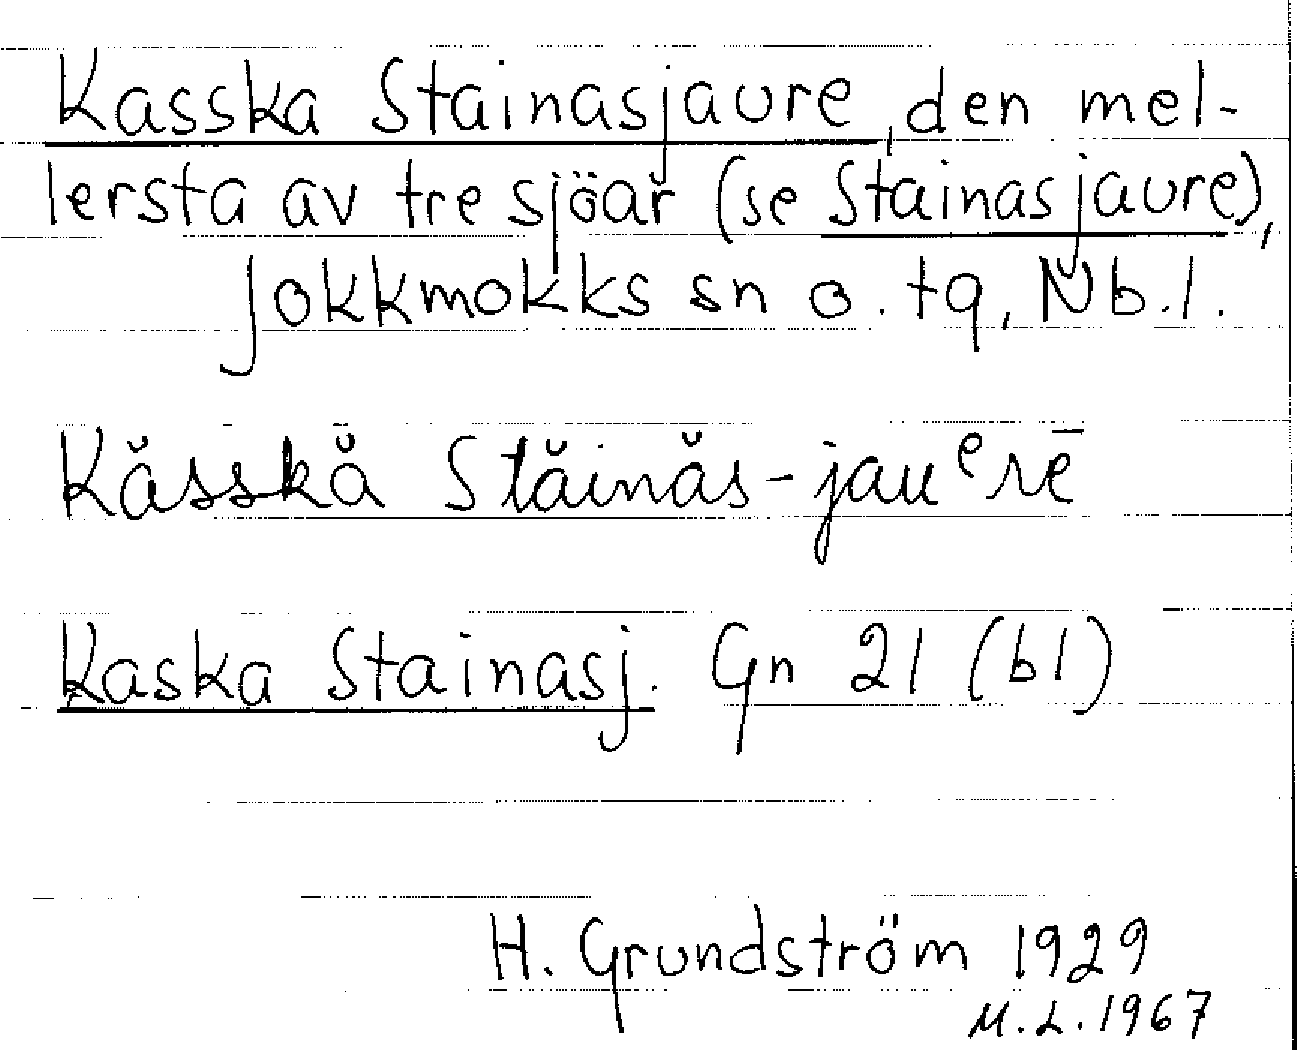 Kasska Stainasjaure, den mel-
lersta av tre sjöar (se Stainasjaure),
Jokkmokks sn o. tg, Nb.l.
Kăsskă̊ Stăinăs-jauᵉrē
Kaska Stainasj. Gn 21 (bl)
H. Grundström 1929
M.L. 1967